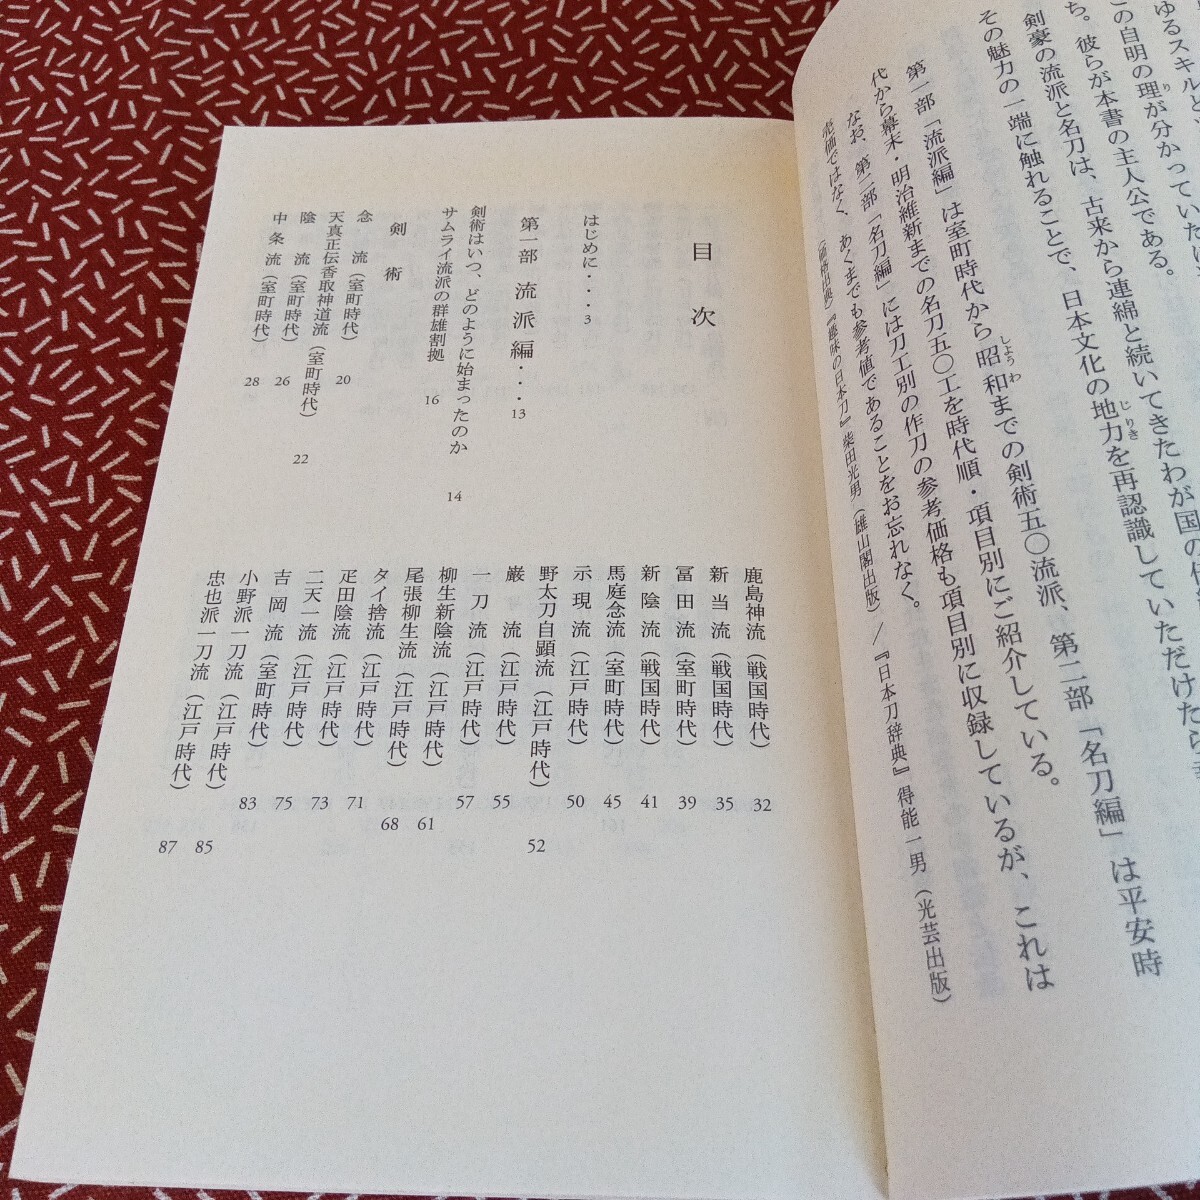 ゆるスキルと、
この自明の理が分かっていたけ
ち。彼らが本書の主人公である。
剣豪の流派と名刀は、古来から連綿と続いてきたわが国の
その魅力の一端に触れることで、日本文化の地力を再認識していただけたら
第一部「流派編」は室町時代から昭和までの剣術五〇流派、第二部「名刀編」は平安時
代から幕末・明治維新までの名刀五〇工を時代順・項目別にご紹介している。
なお、第二部「名刀編」には刀工別の作刀の参考価格も項目別に収録しているが、これは
売価ではなく、あくまでも参考値であることをお忘れなく。
(価格出典)『趣味の日本刀』柴田光男(雄山閣出版)/『日本刀辞典』得能一男(光芸出版)
目次
はじめに・・・3
第一部 流派編・・・13
剣術はいつ、どのように始まったのか 14
サムライ流派の群雄割拠 16
剣術
念流(室町時代) 20
天真正伝香取神道流(室町時代) 22
陰流(室町時代) 26
中条流(室町時代) 28
鹿島神流(戦国時代) 32
新当流(戦国時代) 35
冨田流(室町時代) 39
新陰流(戦国時代) 41
馬庭念流(室町時代) 45
示現流(江戸時代) 50
野太刀自顕流(江戸時代) 52
巌流(江戸時代) 55
一刀流(江戸時代) 57
柳生新陰流(江戸時代) 61
尾張柳生流(江戸時代) 68
タイ捨流(江戸時代) 71
疋田陰流(江戸時代) 73
二天一流(江戸時代) 75
吉岡流(室町時代) 83
小野派一刀流(江戸時代) 85
忠也派一刀流(江戸時代) 87